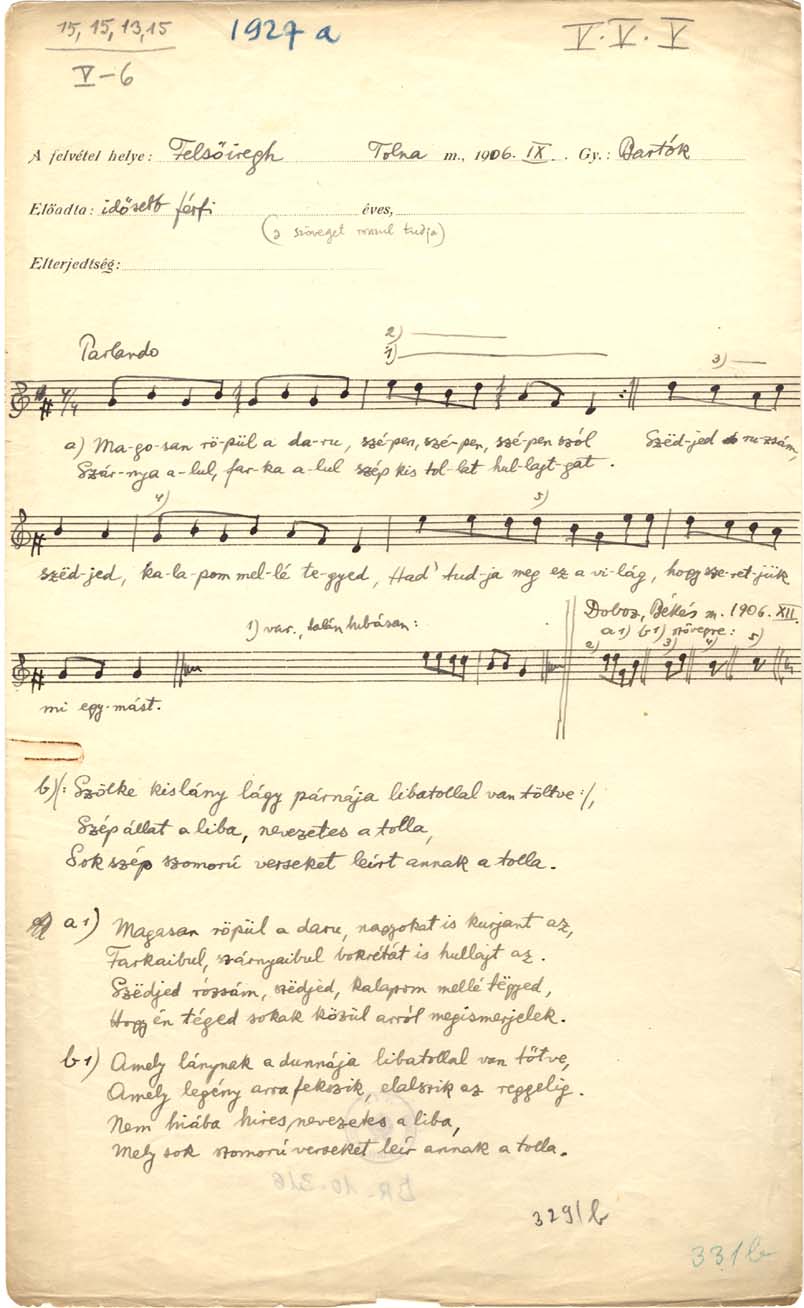 15, 15, 13, 15
1927 a
V. V. V
V-6
A felvétel helye: Felsőiregh Tolna m., 1906. IX. Gy.: Bartók
Előadta: idősebb férfi éves,
(a szöveget rosszul tudja)
Elterjedtség:
2)
Parlando
1)
3)
4/4
a) Ma-go-san rö-pül a da-ru, szé-pen, szé-pen, szé-pen szól Szëd-jed ru-zsám,
Szár-nya a-lul, far-ka a-lul szép kis tol-lat hul-lajt-gat.
4) 5)
szëd-jed, ka-la-pom mel-lé te-gyed, Had' tud-ja meg ez a vi-lág, hogy sze-ret-jük
Doboz, Békés m. 1906. XII.
1) var., talán hibásan: a1) b1) szövegre:
2) 3) 4) 5)
mi egy-mást.
b) /: Szölke kislány lágy párnája libatollal van töltve :/,
Szép állat a liba, nevezetes a tolla,
Sok szép szomorú verseket leírt annak a tolla.
a1) Magasan röpül a daru, nagyokat is kurjant az,
Farkaibul, szárnyaibul bokrétát is hullajt az.
Szëdjed rózsám, szëdjed, kalapom mellé tëgyed,
Hogy én téged sokak közül arról megismerjelek.
b1) Amely lánynak a dunnája libatollal van tötve,
Amely legény arra fekszik, elalszik az reggelig.
Nem hiába hires, nevezetes a liba,
Mely sok szomorú verseket leír annak a tolla.
329/b
331b